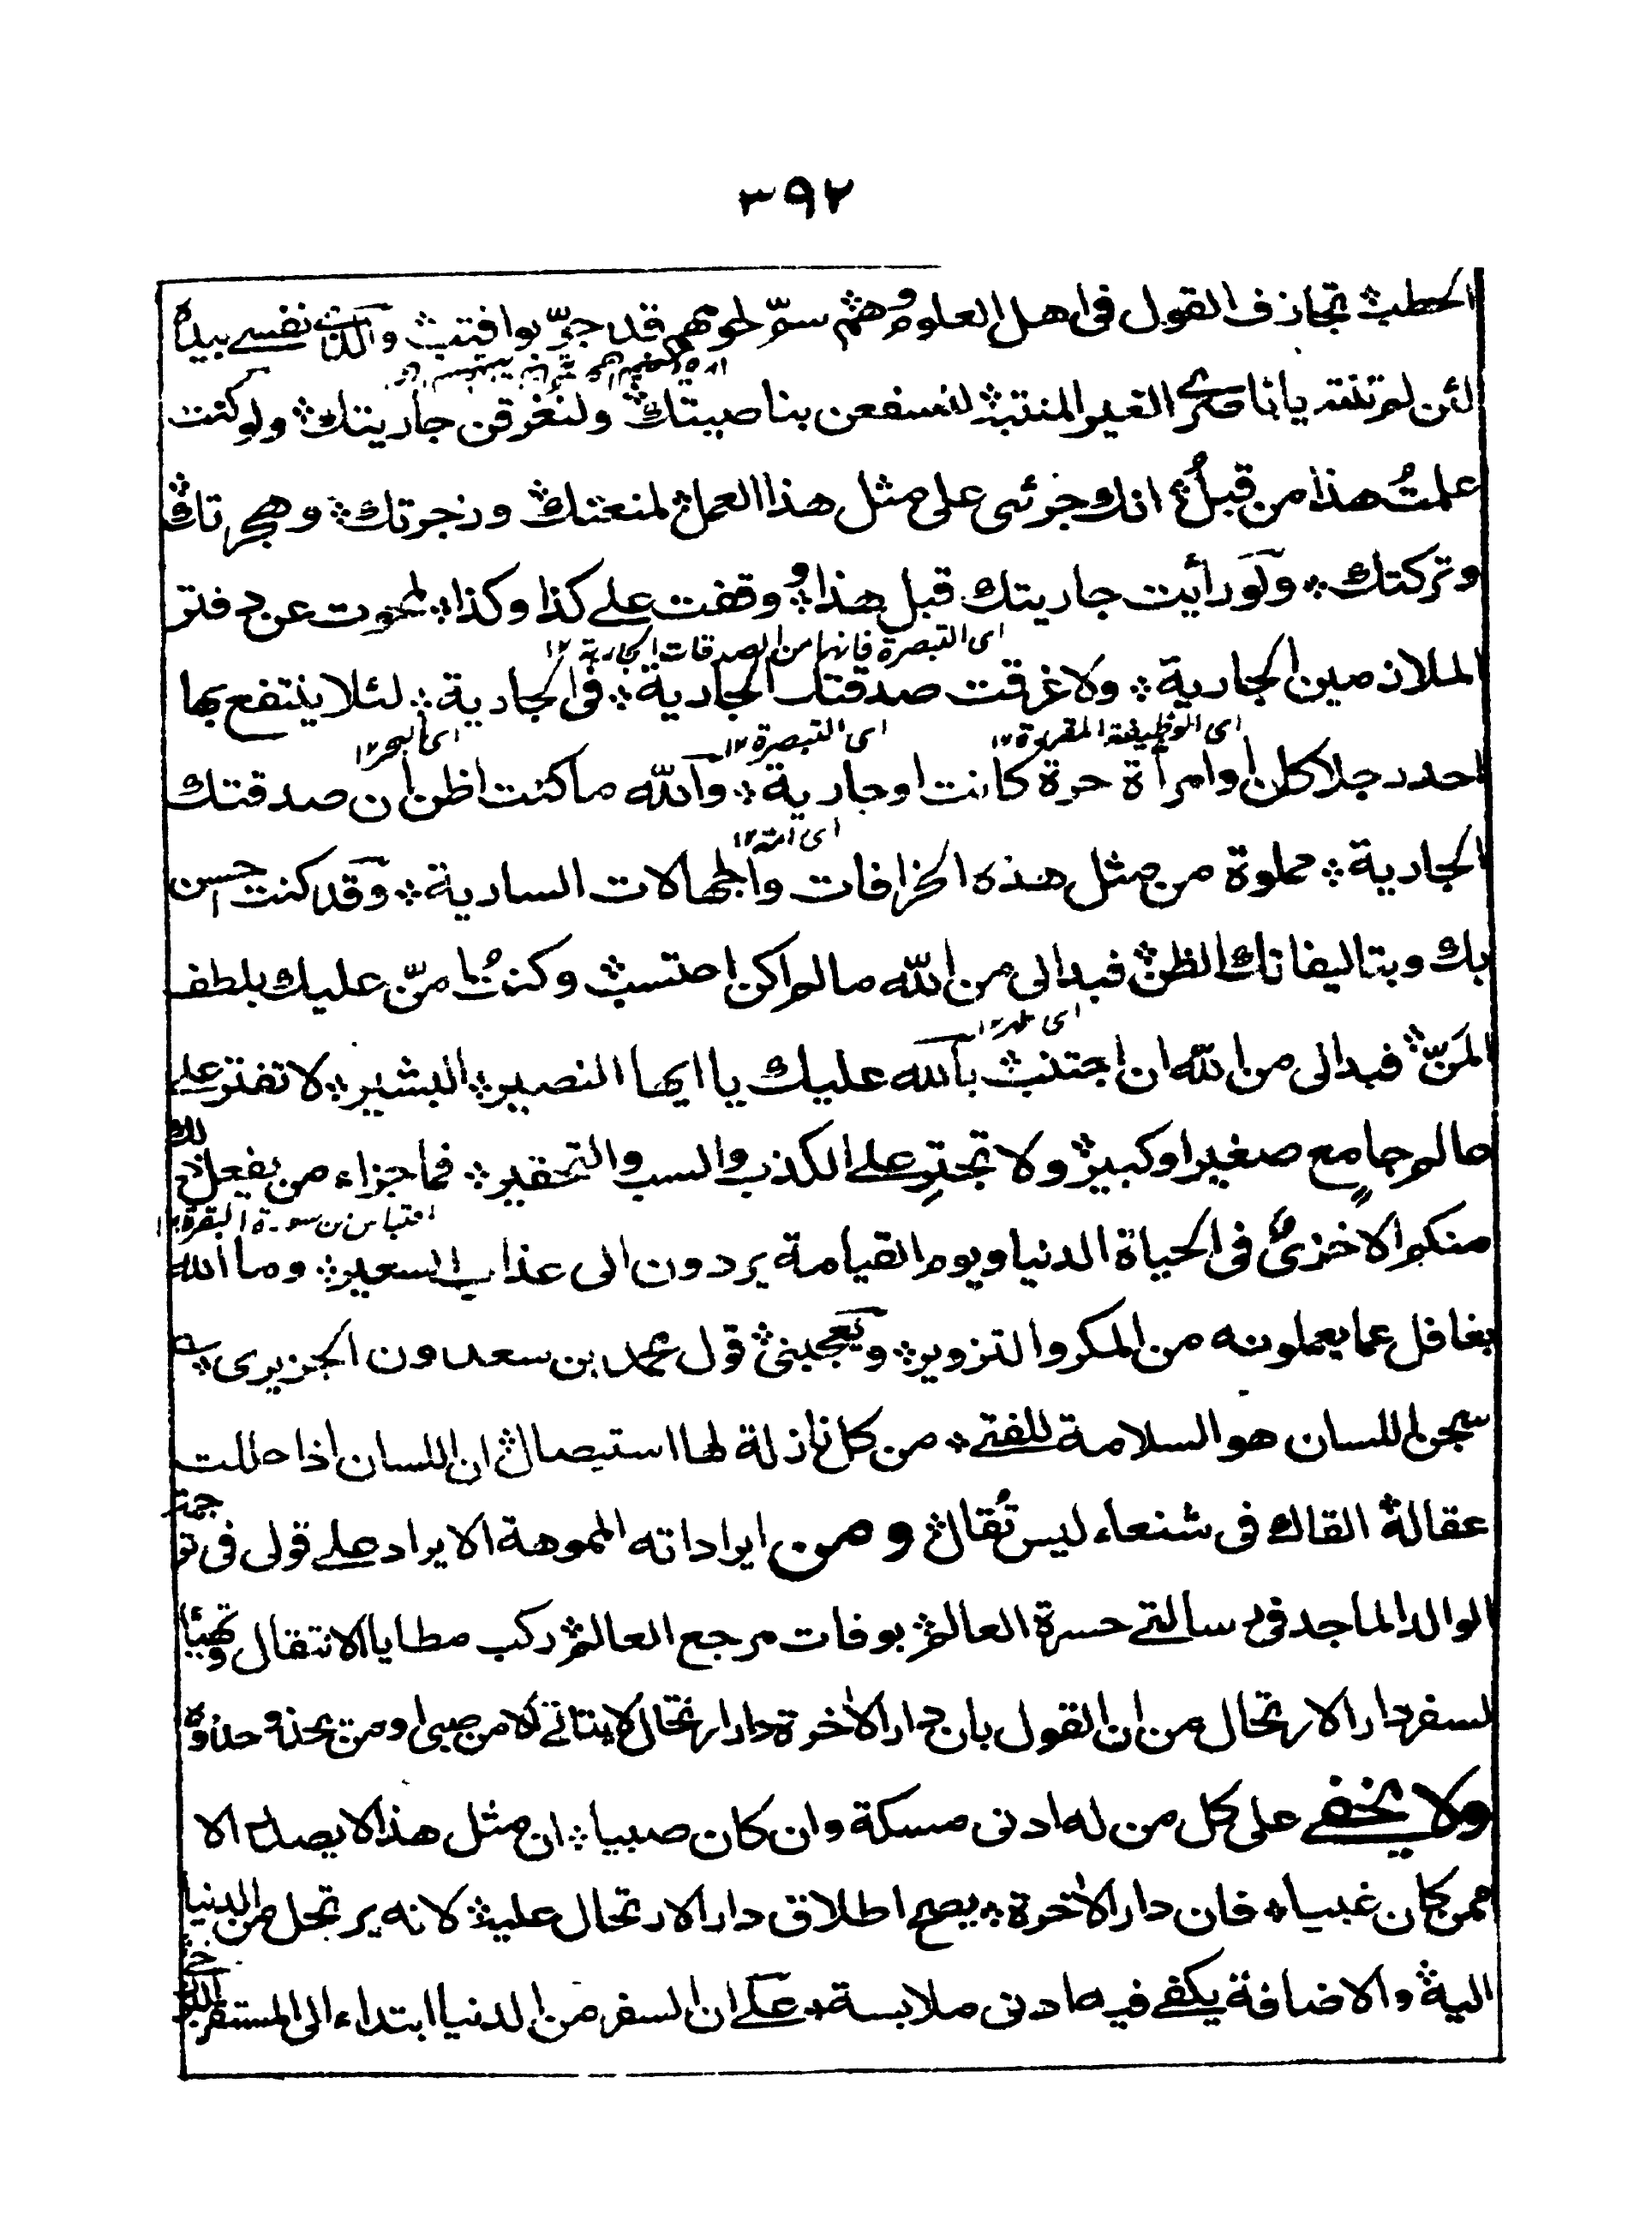 ٣٩٢
الحطب تجازف القول فى اهل العلوم وهم سمّ لحومهم قد جرّبوا فتب والذى نفسى بيده
لئن لم تنته يا ناصرى الغير المنتبه لنسفعن بناصيتك ولنغرقن جاريتك ولو كنت
علمتُ هذا من قبلُ انك جرئى على مثل هذا العمل لمنعتك وزجرتك وهجرتك
وتركتك ولو رأيت جاريتك قبل هذا ووقفت على كذا وكذا لمحوت عن دفتر
اى التبصرة فانها من الصدقات الجارية ١٢
الملازمين الجارية ولاغرقت صدقتك الجارية فى الجارية لئلا ينتفع بها
اى الوظيفة المقررة ١٢ اى التبصرة ١٢ اى البحر ١٢
احد رجلا كان او امرأة حرة كانت او جارية والله ما كنت اظن ان صدقتك
اى امة ١٢
الجارية مملوة من مثل هذه الخرافات والجهالات السارية وقد كنت احسن
بك وبتاليفاتك الظن فبدا لى من الله مالم اكن احتسب وكنت امنّ عليك بلطف
المَنّ فبدا لى من الله ان اجتنب بالله عليك يا ايها النصير البشير لا تفتر على
عالم جامع صغير او كبير ولا تجترِ على الكذب والسب والتحقير فما جزاء من يفعل ذلك
اقتباس من سورة البقرة ١٢
منكم الا خزىٌ فى الحياة الدنيا ويوم القيامة يردون الى عذاب السعير وما الله
بغافل عما يعملونه من المكر والتزوير ويعجبنى قول محمد بن سعدون الجزيرى
سجن اللسان هو السلامة للفتى من كل نازلة لها استيصال ان اللسان اذا حللت
عقاله القاك فى شنعاء ليس تُقال ومن ايراداته المموهة الايراد على قولى فى ترجمة
الوالد الماجد فى رسالتى حسرة العالم بوفات مرجع العالم ركب مطايا الانتقال وتهيأ
لسفر دار الارتحال من ان القول بان دار الآخرة دار ارتحال لا يتاتى الا من صبى او من يحذو حذوه
ولا يخفى على كل من له ادنى مسكة وان كان صبيا ان مثل هذا لا يصدر الا
ممن كان غبيا فان دار الآخرة يصح اطلاق دار الارتحال عليه لانه يرتحل من الدنيا
اليه والاضافة يكفى فيه ادنى ملابسة على ان السفر من الدنيا ابتداء الى المستقر